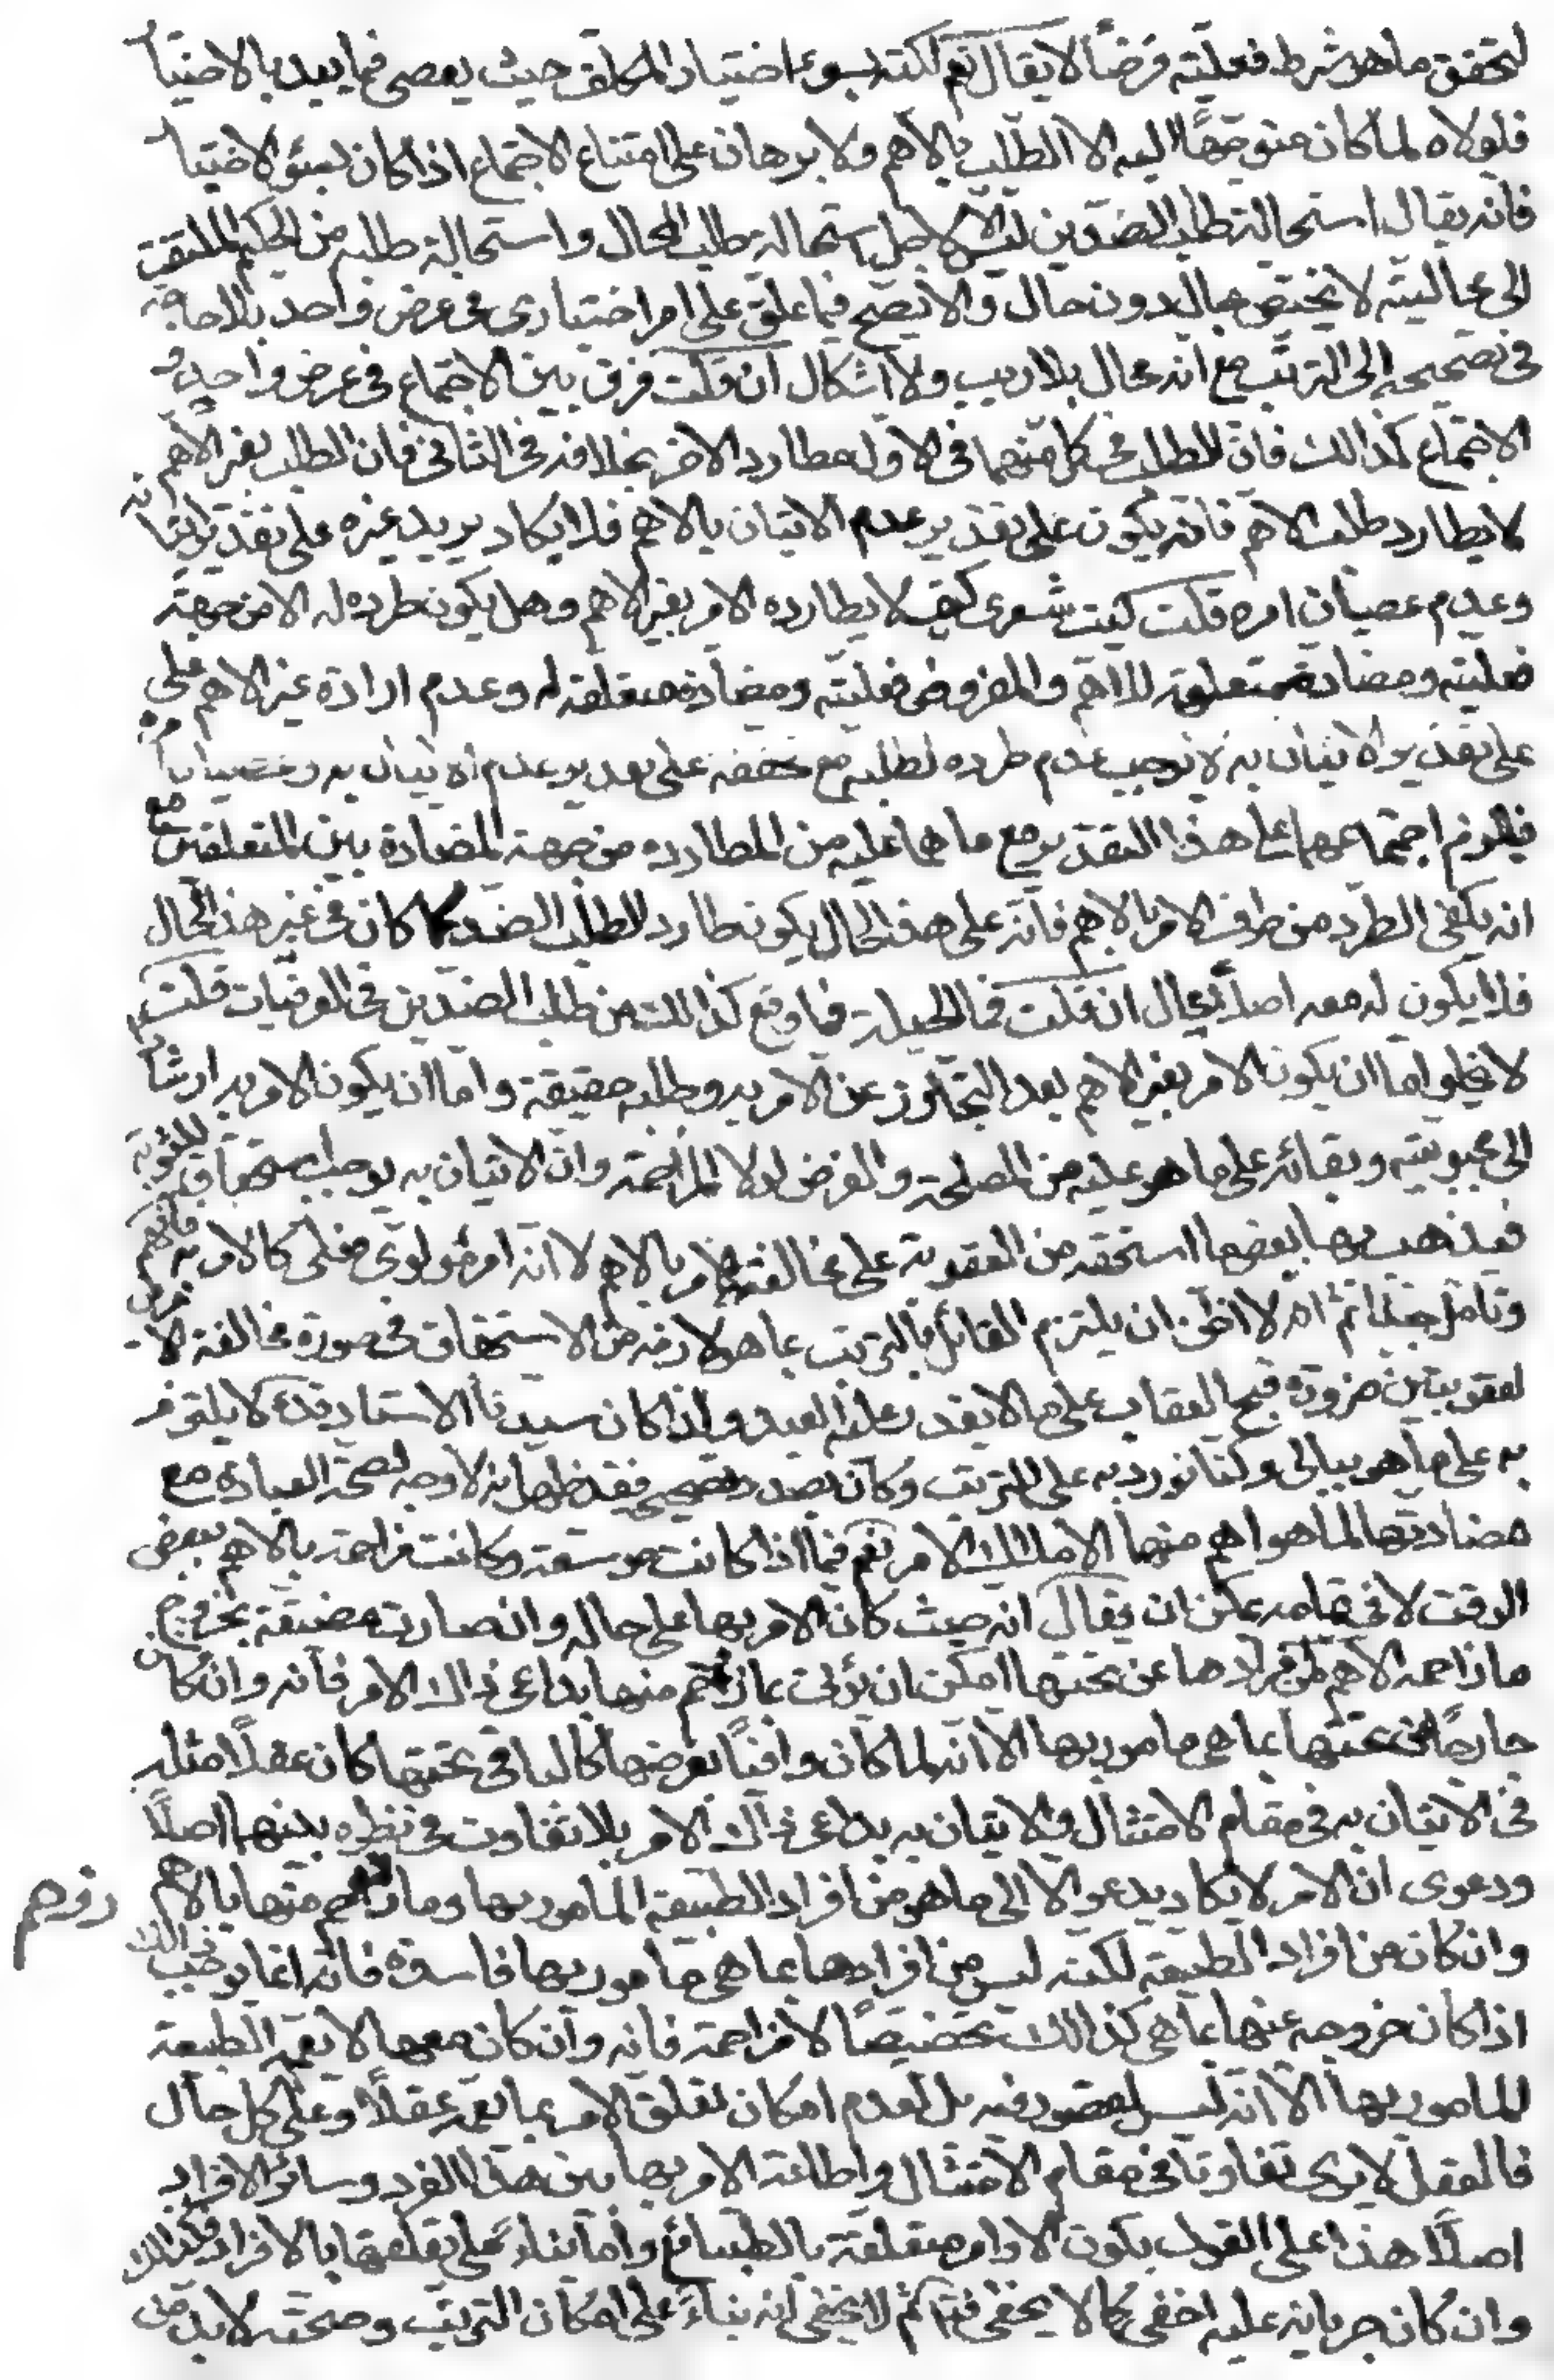 لتحقق ما هو شرط فعليته فرضاً لا يقال نعم لكنه بسوء اختيار المكلف حيث يعصى فيما بعد بالاختيا
فلولاه لما كان متوجهاً اليه الا الطلب بالاهم ولا برهان على امتناع الاجتماع اذا كان بسوء الاختيا
فانه يقال استحالة طلب الضدين ليس الا لاجل استحالة طلب المحال واستحالة طلبه من الحكيم الملتفت
الى محاليته لا يختص بحال دون حال والا لصح فيما علق على امر اختيارى فى عرض واحد بلا حاجة
فى تصحيحه الى الترتب مع انه محال بلا ريب ولا اشكال ان قلت فرق بين الاجتماع فى عرض واحد و
الاجتماع كذالك فان الطلب فى كل منهما فى الاول مطارد الاخر بخلافه فى الثانى فان الطلب بغير الاهم
لا يطارد طلب الاهم فانه يكون على تقدير عدم الاتيان بالاهم فلا يكاد يريد غيره على تقدير اتيانه
وعدم عصيان امره قلت ليت شعرى كيف لا يطارده الامر بغير الاهم وهل يكون طرده له الا من جهة
فعليته ومضادة متعلقه للاهم والمفروض فعليته ومضادة متعلقه له وعدم ارادة غير الاهم على
على تقدير الاتيان به لا يوجب عدم طرده لطلبه مع تحققه على تقدير عدم الاتيان به وعصيان امره
فيلزم اجتماعهما على هذا التقدير مع ما هما عليه من المطاردة من جهة المضادة بين المتعلقين مع
انه يكفى الطرد من طرف الامر بالاهم فانه على هذا الحال يكون طارد لطلب الضد كما كان فى غير هذا الحال
فلا يكون له معه اصلاً بمحال ان قلت فما الحيلة فيما وقع كذالك من طلب الضدين فى العرفيات قلت
لا يخلو اما ان يكون الامر بغير الاهم بعد التجاوز عن الامر به وطلبه حقيقة واما ان يكون الامر به ارشادا
الى محبوبيته وبقائه على ما هو عليه من المصلحة والغرض لولا المزاحمة وان الاتيان به يوجب استحقاق للمثوبة
فيذهب بها بعض ما استحقه من العقوبة على مخالفة الامر بالاهم لا انه امر مولوى فعلى كالامر به فافهم
وتامل جيدا ثم انه لا اظن ان يلتزم القائل بالترتب بما هو لازمه من الاستحقاق فى صورة مخالفة الامرين
لعقوبتين ضرورة قبح العقاب على ما لا يقدر عليه العبد ولذا كان سيدنا الاستاد قده لا يلتزم
به على ما هو ببالى وكنا نورد به على الترتب وكان بصدد تصحيحه فقد ظهر انه لا وجه لصحة العبادة مع
مضادتها لما هو اهم منها الا ملاك الامر نعم فيما اذا كانت موسعة وكانت مزاحمة بالاهم ببعض
الوقت لا فى تمامه يمكن ان يقال انه حيث كان الامر بها على حاله وان صارت مضيقة بخروج
ما زاحمه الاهم من افرادها من تحتها امكن ان يؤتى بما زوحم منها بداعى ذاك الامر فانه وان كان
خارجاً عن تحتها بما هى مامور بها الا انه لما كان وافياً بغرضها كالباقى تحتها كان عقلاً مثله
فى الاتيان به فى مقام الامتثال والاتيان به بداعى ذاك الامر بلا تفاوت فى نظره بينهما اصلاً
ودعوى ان الامر لا يكاد يدعو الا الى ما هو من افراد الطبيعة المامور بها وما زوحم منها بالاهم
زوحم
وان كان من افراد الطبيعة لكنه ليس من افرادها بما هى مامور بها فاسدة فانه انما يوجب ذالك
اذا كان خروجه عنها بما هى كذالك تخصيصاً لا مزاحمة فانه وان كان معها لا تعمه الطبيعة
المامور بها الا انه ليس لقصور فيه بل لعدم امكان تعلق الامر بما تعمه عقلاً وعلى كل حال
فالعقل لا يرى تفاوتاً فى مقام الامتثال واطاعة الامر بها بين هذا الفرد وسائر الافراد
اصلاً هذا على القول بكون الاوامر متعلقة بالطبائع واما بناء على تعلقها بالافراد فكذالك
وان كان جريانه عليه اخفى كما لا يخفى فتامل ثم لا يخفى انه بناء على امكان الترتب وصحته لا بد من